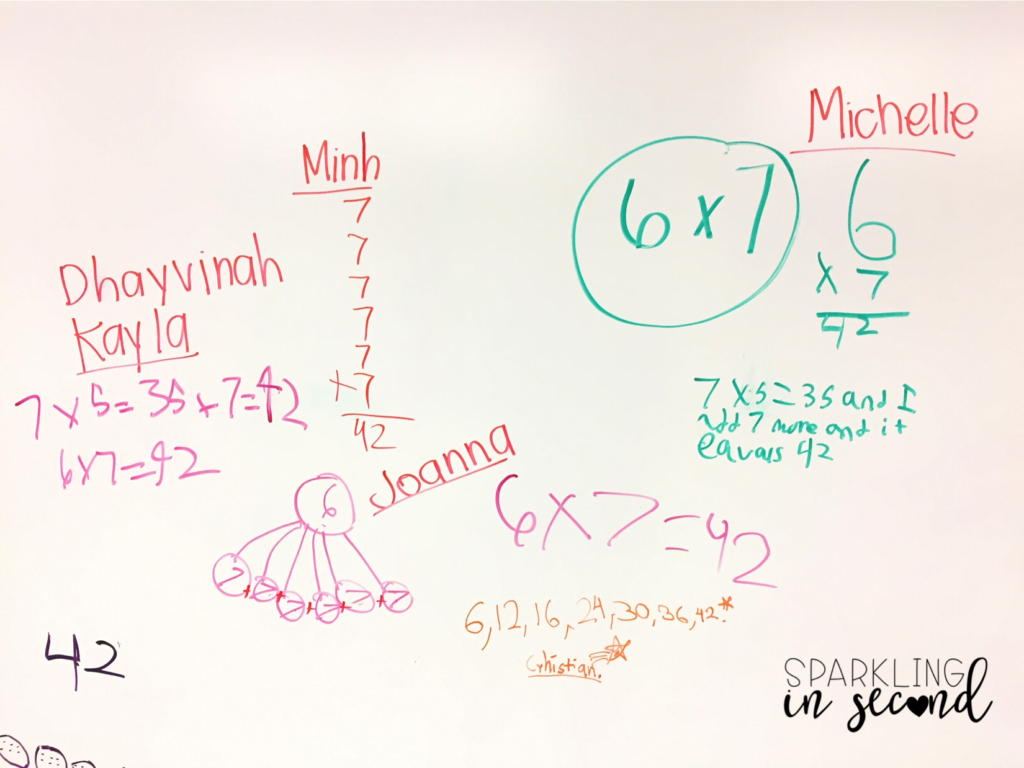 Michelle
6 x 7
6
x 7
42
7 x 5 = 35 and I
add 7 more and it
equals 42
Minh
7
7
7
7
7
+7
42
Dhayvinah
Kayla
7 x 5 = 35 + 7 = 42
6x7=42
Joanna
6
7 + 7 + 7 + 7 + 7 + 7
6x7=42
6,12,16,24,30,36,42.*
Christian.
42
SPARKLING
in second